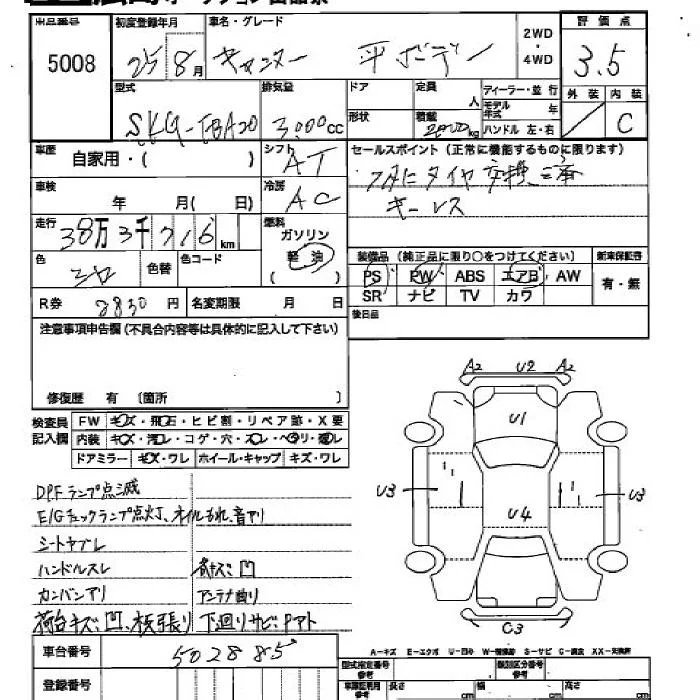 出品番号 5008
初度登録年月 25 8月
車名・グレード キャンター 平ボディ
2WD・4WD
評価点 3.5
外装 内装 C
型式 SKG-FBA20
排気量 3,000cc
ドア 形状
定員 人
積載 2000kg
ディーラー・並行
モデル年式 年
ハンドル 左・右
車歴 自家用・( )
シフト AT
セールスポイント(正常に機能するものに限ります)
タイヤ交換済
キーレス
車検 年 月( 日)
冷房 AC
走行 38万3千716km
燃料 ガソリン 軽油 ( )
色 シロ 色替 色コード
装備品(純正品に限り○をつけてください)
PS PW ABS エアB AW
SR ナビ TV カワ
新車保証書 有・無
R券 8830円 名変期限 月 日
後日品
注意事項申告欄(不具合内容等は具体的に記入して下さい)
修復歴 有 〔箇所 〕
検査員記入欄
FW キズ・飛石・ヒビ割・リペア跡・X要
内装 キズ・汚レ・コゲ・穴・スレ・ヘタリ・破レ
ドアミラー キズ・ワレ ホイール・キャップ キズ・ワレ
DPFランプ点滅
E/Gチェックランプ点灯、オイルもれ、音アリ
シートヤブレ
ハンドルスレ
カンバンアリ アンテナ曲り
荷台キズ、凹、板張り 下廻りサビ、Pアト
A2 U2 A2
U1
U3 U3
U4
C3
車台番号 502885
登録番号
A-キズ E-エクボ U-凹み W-補修跡 S-サビ C-腐食 XX-交換済
型式指定番号 参考
類別区分番号 参考
長さ cm 幅 cm 高さ cm